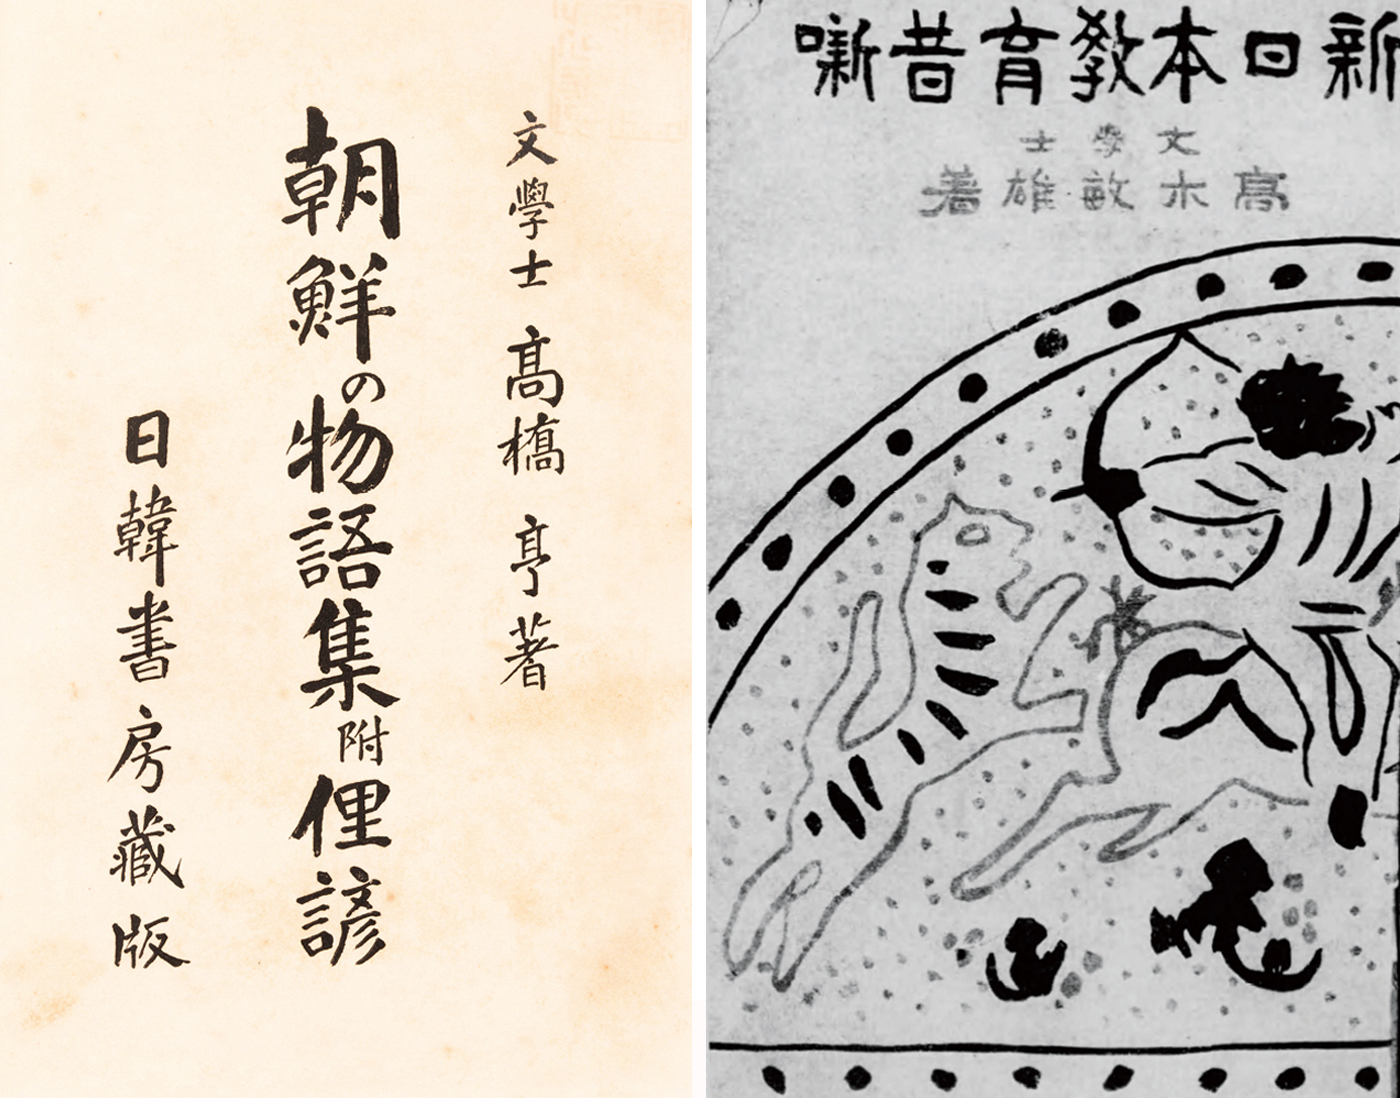 文學士 高橋 亨著
朝鮮の物語集附俚諺
日韓書房藏版
新日本教育昔噺
文學士
高木敏雄著